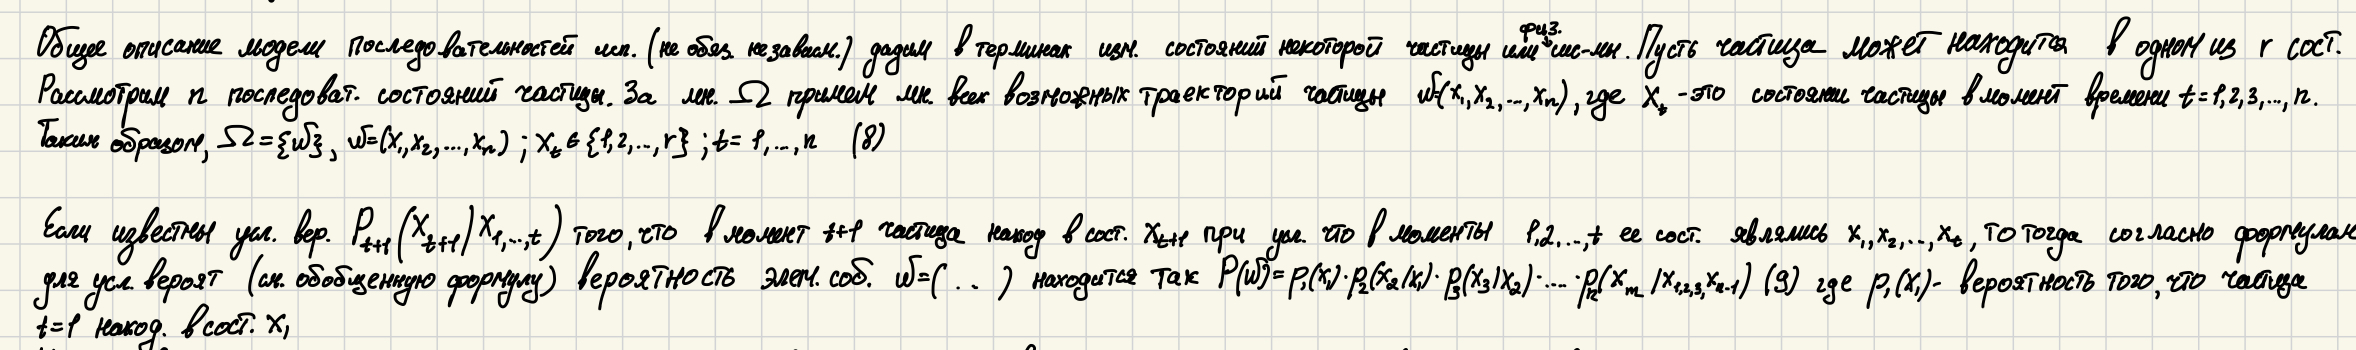 Общее описание модели последовательностей исп. (не обяз. независим.) дадим в терминах изм. состояний некоторой частицы или физ. сис-мы. Пусть частица может находится в одном из r сост.
Рассмотрим n последоват. состояний частицы. За мн. Ω примем мн. всех возможных траекторий частицы ω=(x₁,x₂,...,xₙ), где Xₜ - это состояние частицы в момент времени t=1,2,3,...,n.
Таким образом, Ω={ω}, ω=(x₁,x₂,...,xₙ) ; xₜ ∈ {1,2,..,r} ; t= 1,...,n (8)
Если известны усл. вер. Pₜ₊₁(Xₜ₊₁ | X₁,...,ₜ) того, что в момент t+1 частица наход в сост. Xₜ₊₁ при усл. что в моменты 1,2,...,t ее сост. являлись x₁,x₂,...,xₜ, то тогда согласно формулам
для усл. вероят (см. обобщенную формулу) вероятность элем. соб. ω=(. . ) находится так P(ω)=p₁(x₁)·p₂(x₂/x₁)·p₃(x₃/x₂)·....·pₙ(xₘ /x₁,₂,₃,xₙ₋₁) (9) где p₁(x₁)- вероятность того, что частица
t=1 наход. в сост. x₁